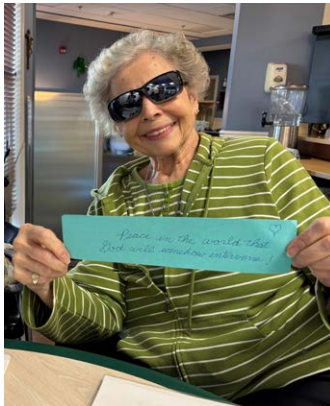 Peace in the world that
God will somehow intervene!